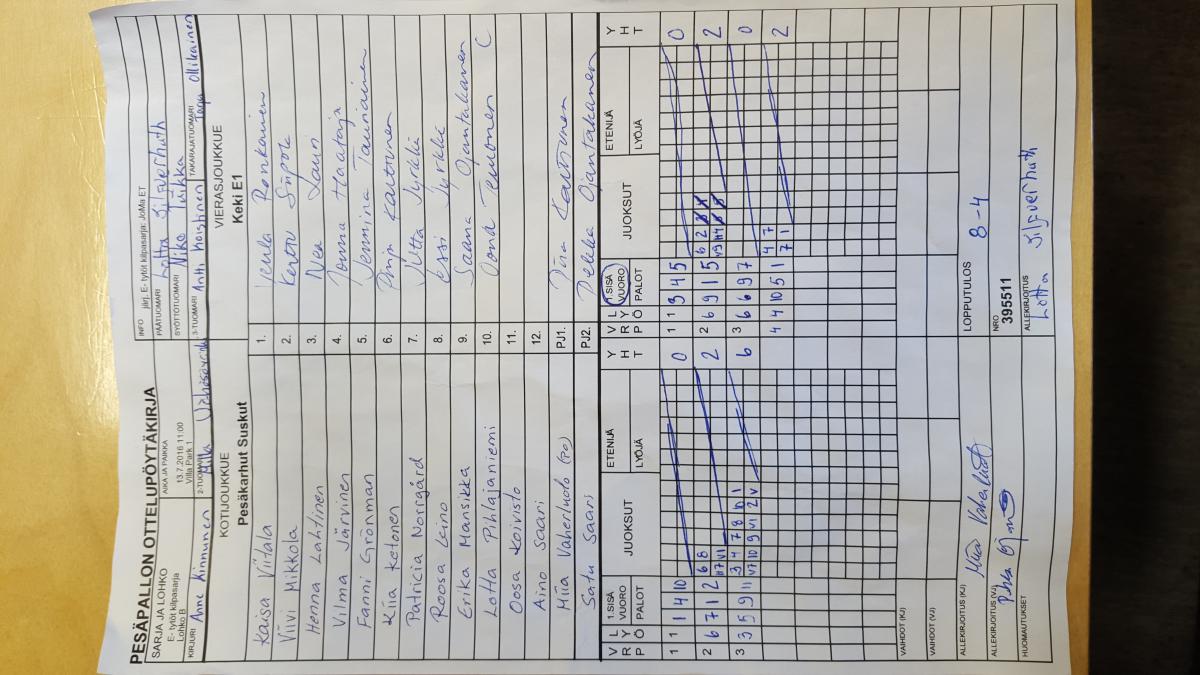 PESÄPALLON OTTELUPÖYTÄKIRJA
SARJA JA LOHKO
E- tytöt kilpasarja
Lohko B
AIKA JA PAIKKA
13.7.2016 11:00
Villa Park 1
INFO järj. E- tytöt kilpasarja: JoMa ET
PÄÄTUOMARI Lotta Siljverhuth
SYÖTTÖTUOMARI Niko Tuikka
KIRJURI Anne Kinnunen
2-TUOMARI Milla
3-TUOMARI Antti Moishinen
TAKARAJATUOMARI Tarja Ollikainen
KOTIJOUKKUE
Pesäkarhut Suskut
VIERASJOUKKUE
Keki E1
Kaisa Viitala 1. Venla Ronkainen
Viivi Mikkola 2. Kerttu Siipola
Henna Lahtinen 3. Nea Sauri
Vilma Järvinen 4. Jonna Haataja
Fanni Grönman 5. Jemina Tauriainen
Kiia Ketonen 6. Pinja Karttunen
Patricia Norrgård 7. Jutta Jyrkkä
Roosa Leino 8. Essi Jyrkkä
Erika Mansikka 9. Saana Ojantakanen
Lotta Pihlajaniemi 10. Oona Temonen C
Oosa Koivisto 11.
Aino Saari 12.
Miia Vaherluoto (PO) PJ1. Piia Karttunen
Satu Saari PJ2. Pekka Ojantakanen
V R P L Y Ö 1.SISÄ VUORO PALOT JUOKSUT ETENIJÄ LYÖJÄ Y H T V R P L Y Ö 1.SISÄ VUORO PALOT JUOKSUT ETENIJÄ LYÖJÄ Y H T
1 1 1 4 10 0 1 1 3 4 5 0
2 6 7 1 2 6 8 2 2 6 9 1 5 6 2 2
3 3 5 9 11 3 4 7 8 10 1 6 3 6 6 9 7 0
4 4 10 5 1 4 7 2
7 1
VAIHDOT (KJ)
VAIHDOT (VJ)
ALLEKIRJOITUS (KJ) Miia
LOPPUTULOS 8-4
ALLEKIRJOITUS (VJ)
NRO
395511
HUOMAUTUKSET
ALLEKIRJOITUS
Lotta Siljverhuth